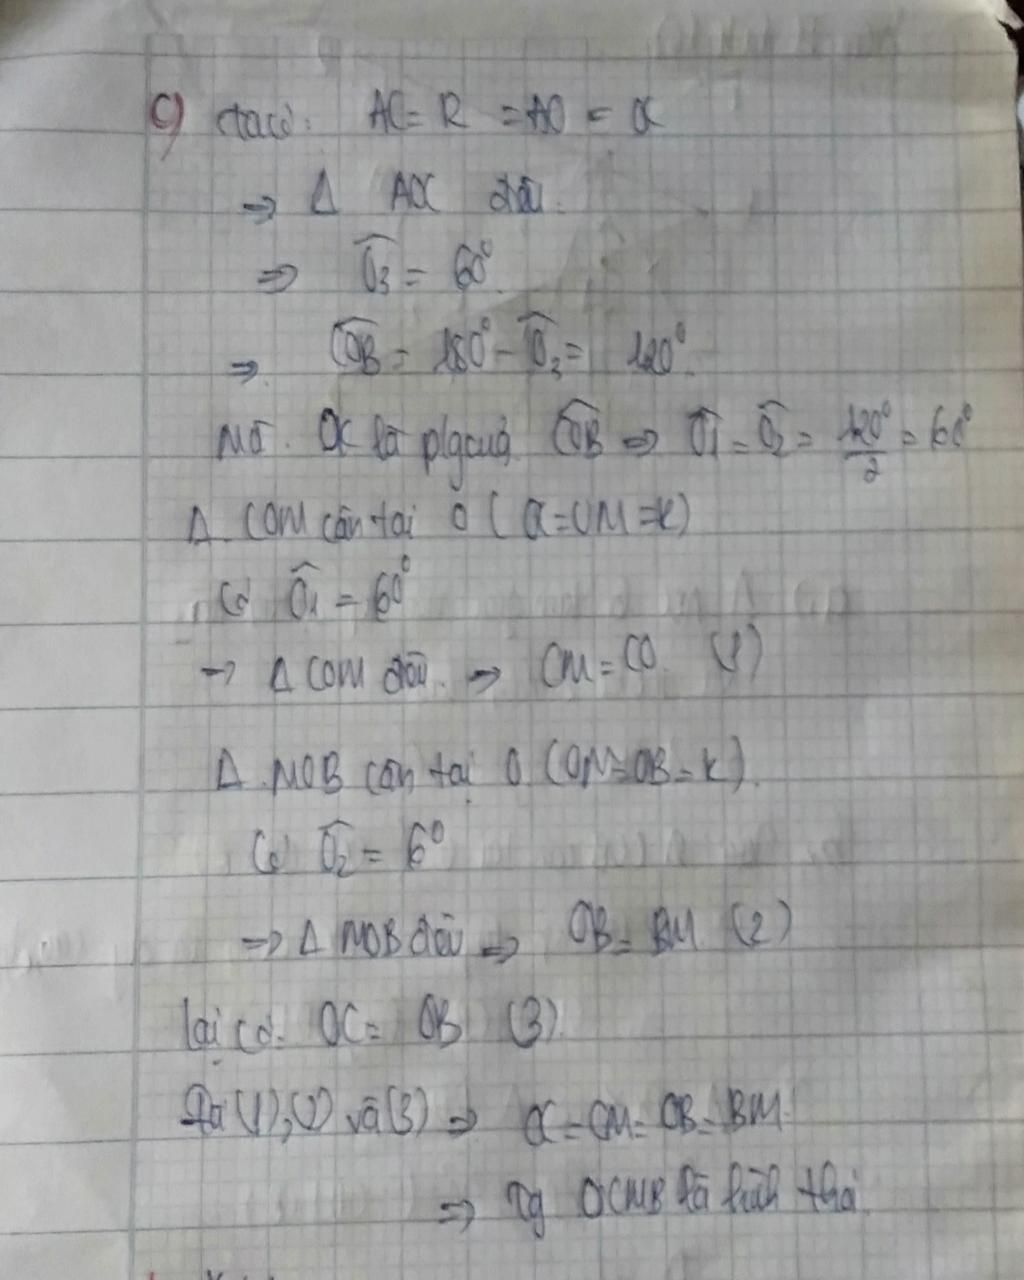 c) ta có: AC = R = AO = OC
⇒ Δ AOC đều.
⇒ Ô3 = 60°.
⇒ CÔB = 180° - Ô3 = 120°.
Mà OC là p/g của CÔB ⇒ Ô1 = Ô2 = 120°/2 = 60°
Δ COM cân tại O (OC = OM = R)
Có Ô1 = 60°
→ Δ COM đều. → CM = CO. (1)
Δ MOB cân tại O (OM = OB = R).
Có Ô2 = 60
⇒ Δ MOB đều ⇒ OB = BM (2)
lại có: OC = OB (3).
Từ (1), (2) và (3) ⇒ OC = CM = OB = BM.
⇒ Tg OCMB là hình thoi.